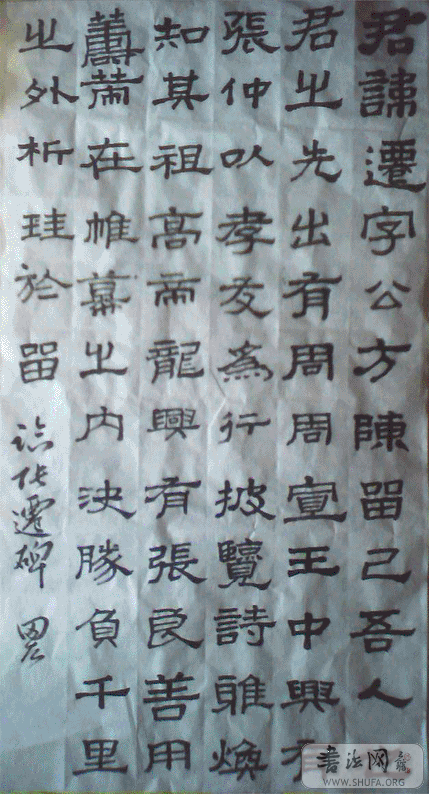 君諱遷字公方陳留己吾人
君之先出有周周宣王中興有
張仲以孝友爲行披覽詩雅煥
知其祖高帝龍興有張良善用
籌策在帷幕之內決勝負千里
之外析珪於留
臨张遷碑
書法网
WWW.SHUFA.ORG